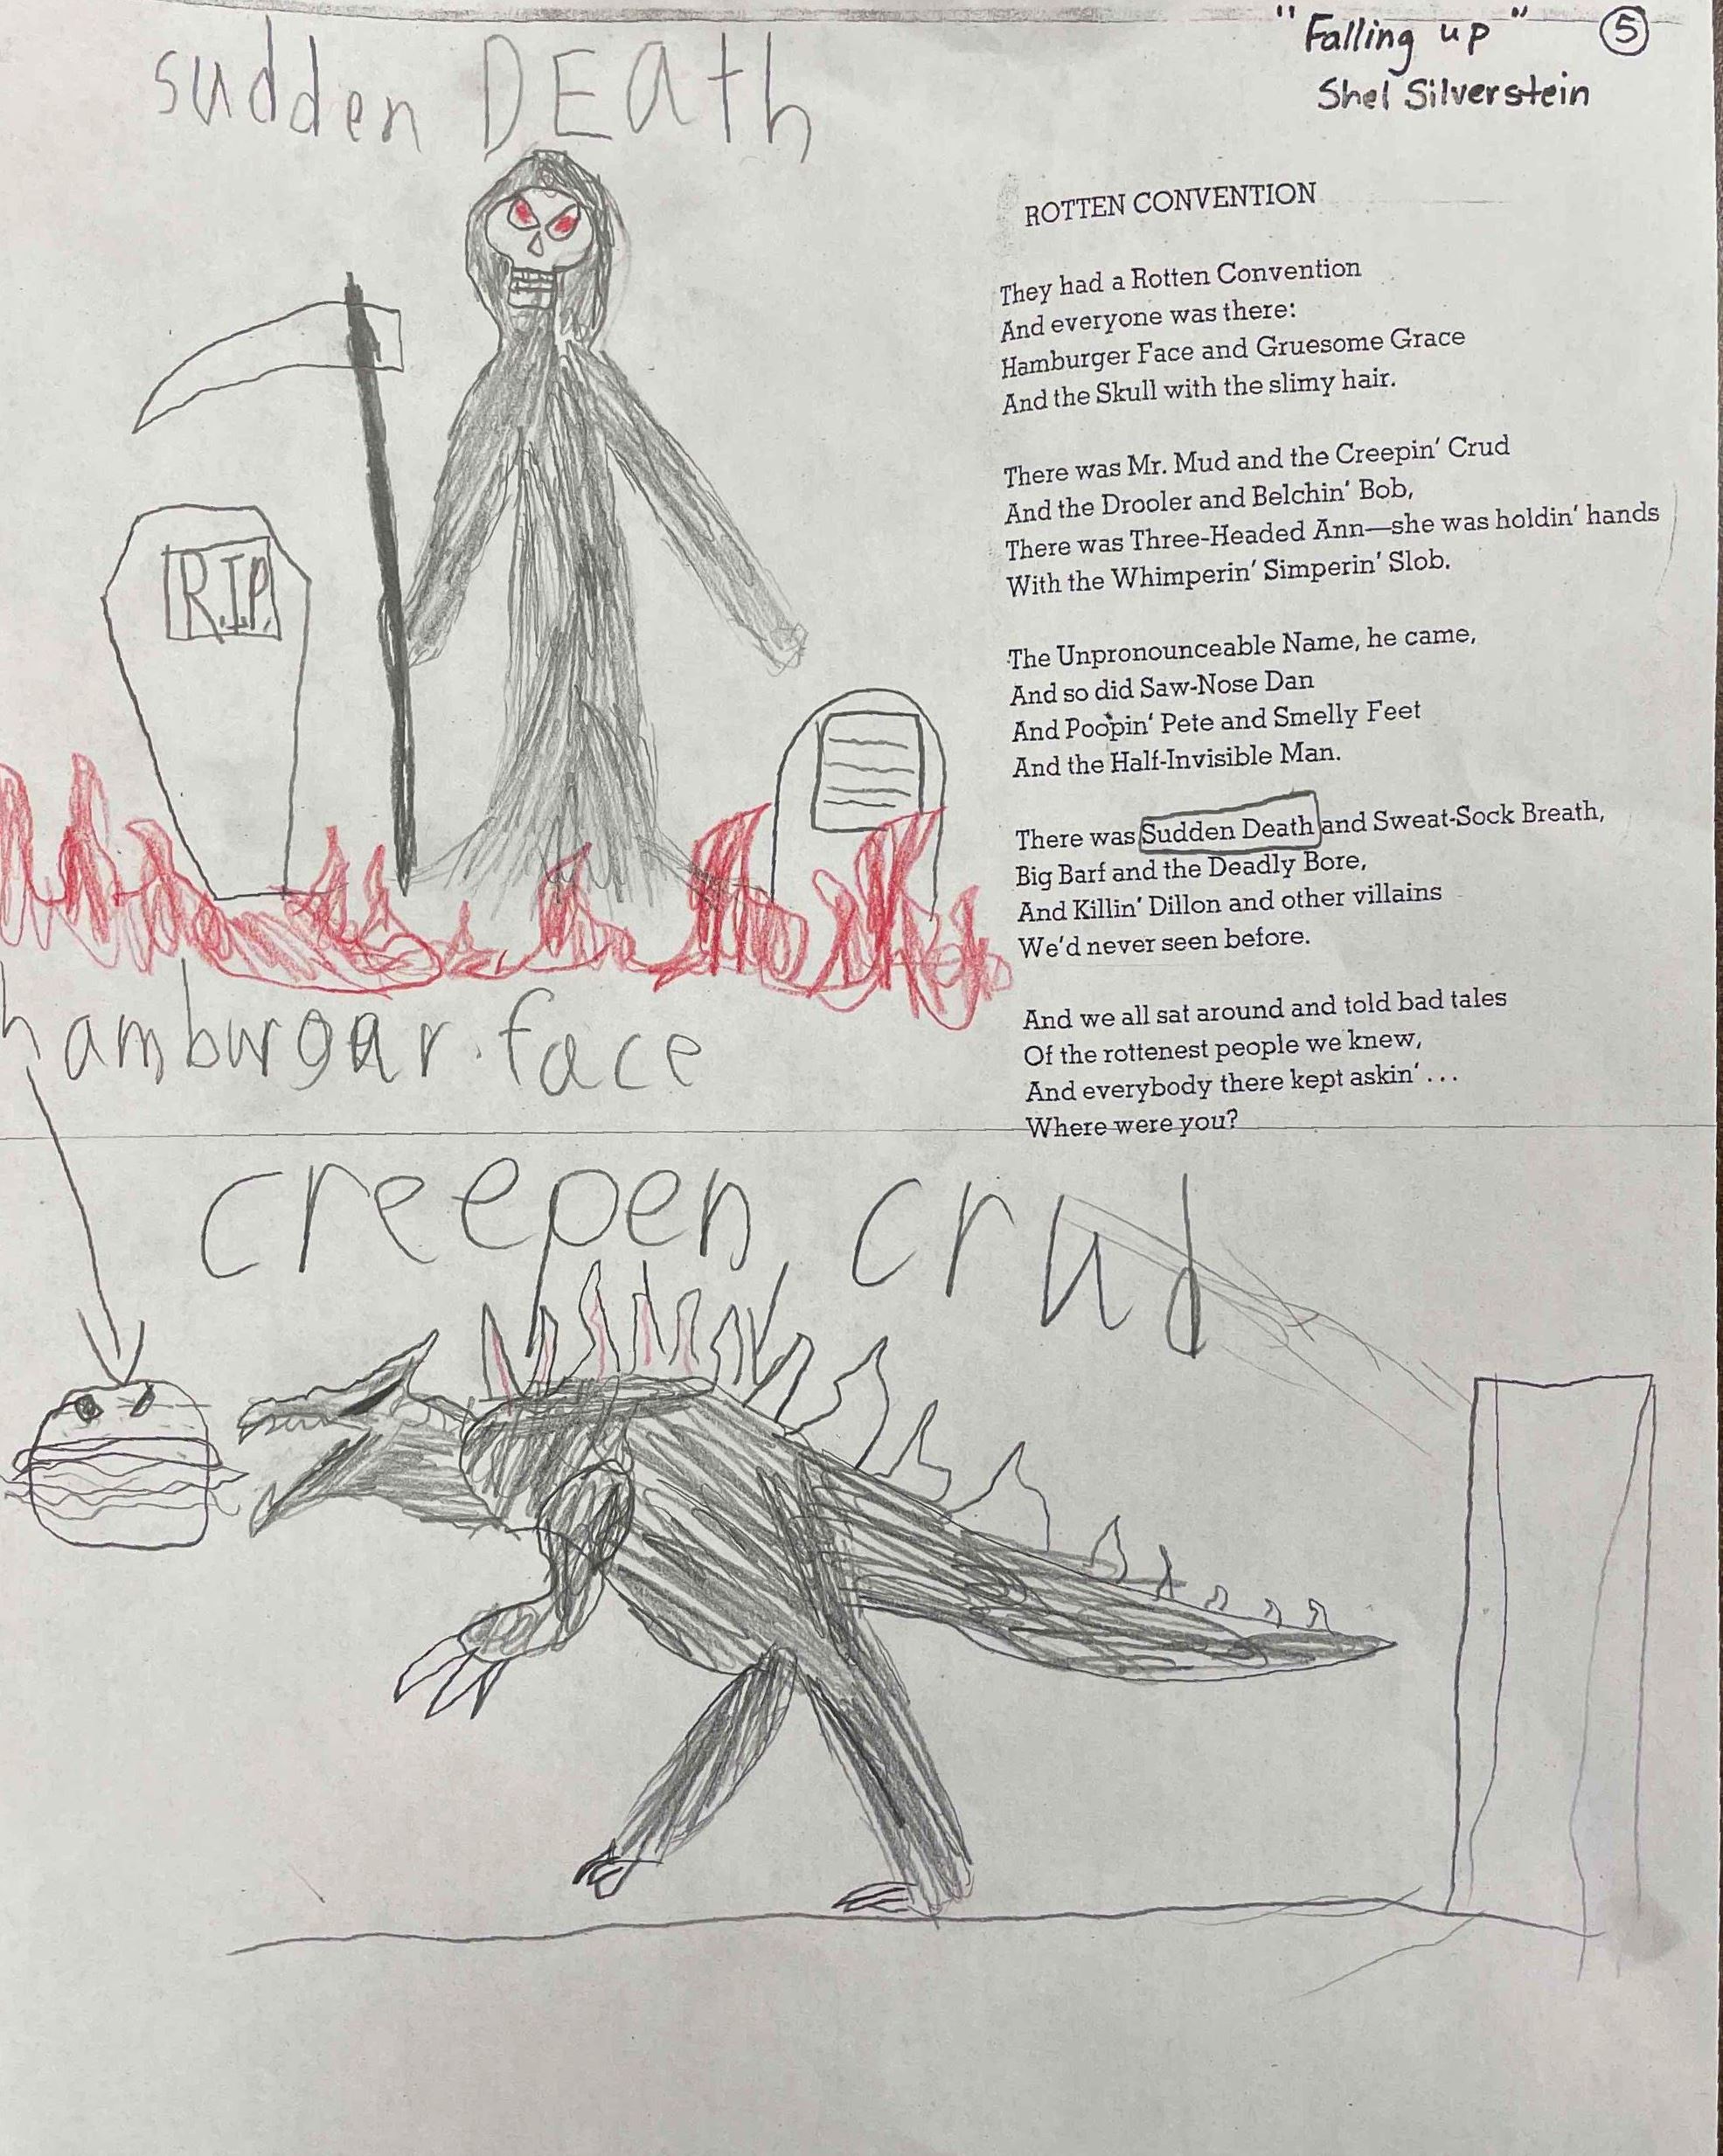 sudden DEAth
"Falling up" 5
Shel Silverstein
ROTTEN CONVENTION
They had a Rotten Convention
And everyone was there:
Hamburger Face and Gruesome Grace
And the Skull with the slimy hair.
There was Mr. Mud and the Creepin' Crud
And the Drooler and Belchin' Bob,
There was Three-Headed Ann—she was holdin' hands
With the Whimperin' Simperin' Slob.
The Unpronounceable Name, he came,
And so did Saw-Nose Dan
And Poopin' Pete and Smelly Feet
And the Half-Invisible Man.
There was Sudden Death and Sweat-Sock Breath,
Big Barf and the Deadly Bore,
And Killin' Dillon and other villains
We'd never seen before.
And we all sat around and told bad tales
Of the rottenest people we knew,
And everybody there kept askin' . . .
Where were you?
R.I.P.
hamburgar face
creepen crud